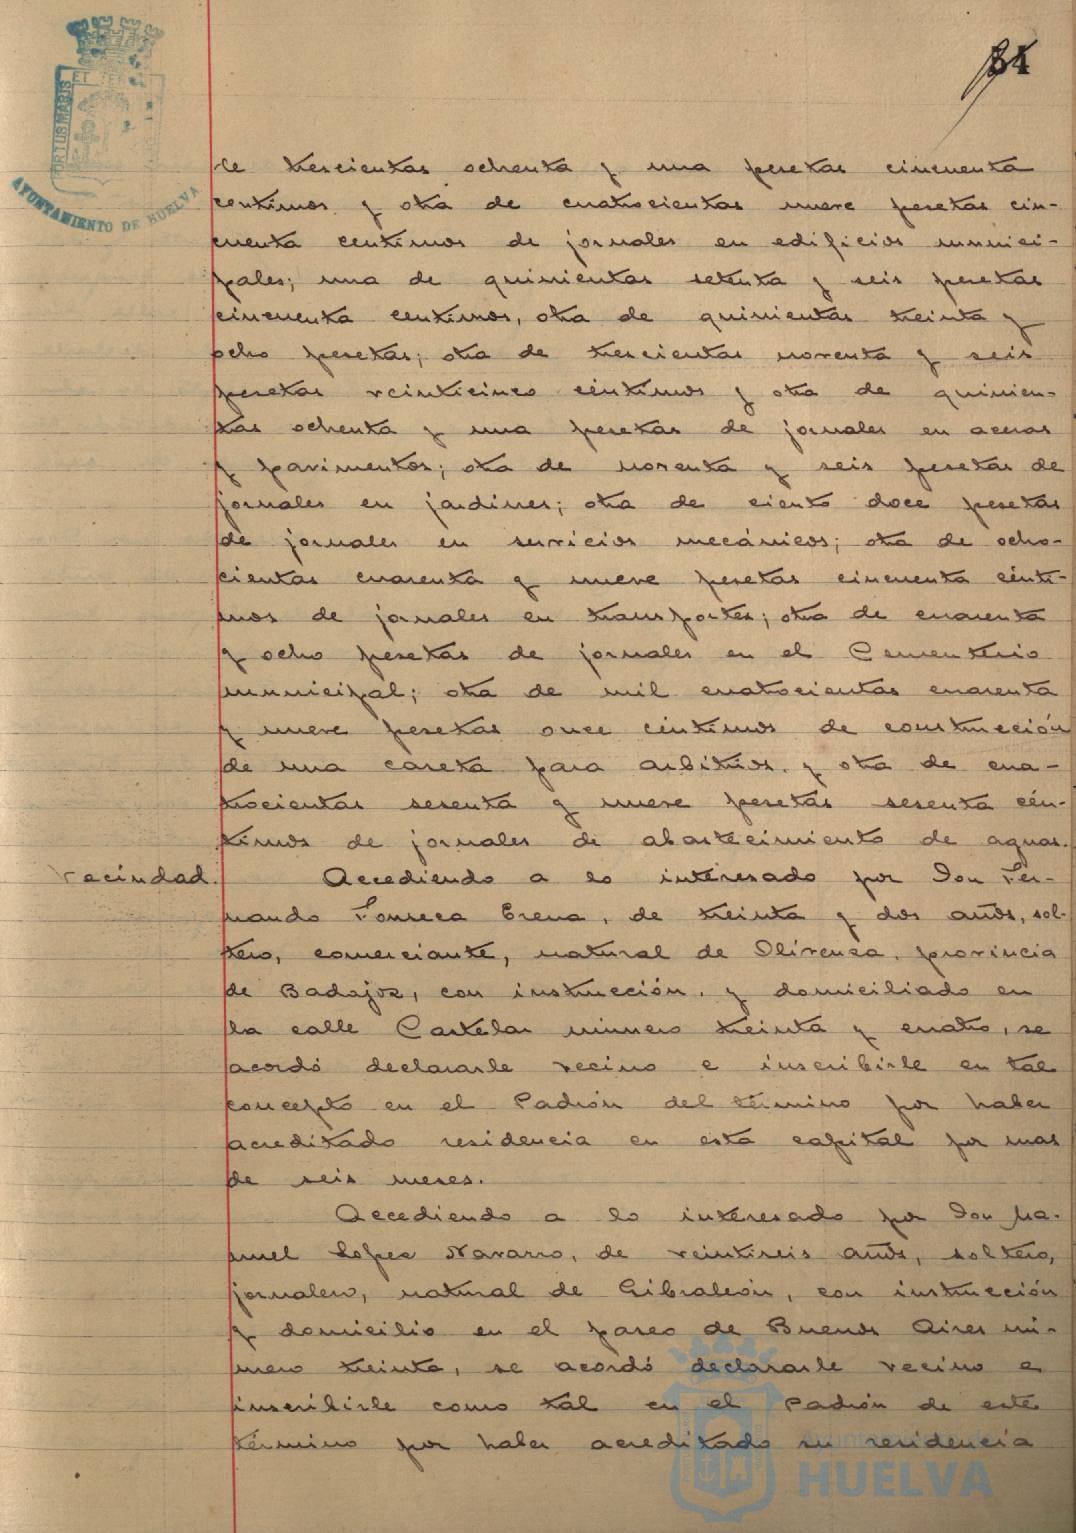 84
PORTUS MARIS
ET TERRÆ
AYUNTAMIENTO DE HUELVA
de trescientas ochenta y una pesetas cincuenta
centimos y otra de cuatrocientas nueve pesetas cin-
cuenta centimos de jornales en edificios munici-
pales; una de quinientas setenta y seis pesetas
cincuenta centimos, otra de quinientas treinta y
ocho pesetas; otra de trescientas noventa y seis
pesetas veinticinco céntimos y otra de quinien-
tas ochenta y una pesetas de jornales en aceras
y pavimentos; otra de noventa y seis pesetas de
jornales en jardines; otra de ciento doce pesetas
de jornales en servicios mecánicos; otra de ocho-
cientas cuarenta y nueve pesetas cincuenta cénti-
mos de jornales en transportes; otra de cuarenta
y ocho pesetas de jornales en el Cementerio
municipal; otra de mil cuatrocientas cuarenta
y nueve pesetas once céntimos de construcción
de una caseta para arbitrios. y otra de cua-
trocientas sesenta y nueve pesetas sesenta cén-
timos de jornales de abastecimiento de aguas.
Vecindad. Accediendo a lo interesado por Don Fer-
nando Fonseca Erena, de treinta y dos años, sol-
tero, comerciante, natural de Olivenza, provincia
de Badajoz, con instrucción, y domiciliado en
la calle Castelar número treinta y cuatro, se
acordó declararle vecino e inscribirle en tal
concepto en el Padrón del término por haber
acreditado residencia en esta capital por mas
de seis meses.
Accediendo a lo interesado por Don Ma-
nuel Lopez Navarro, de veintiseis años, soltero,
jornalero, natural de Gibraleón, con instrucción
y domicilio en el paseo de Buenos Aires nú-
mero treinta, se acordó declararle vecino e
inscribirle como tal en el Padrón de este
término por haber acreditado su residencia
Ayuntamiento de
HUELVA